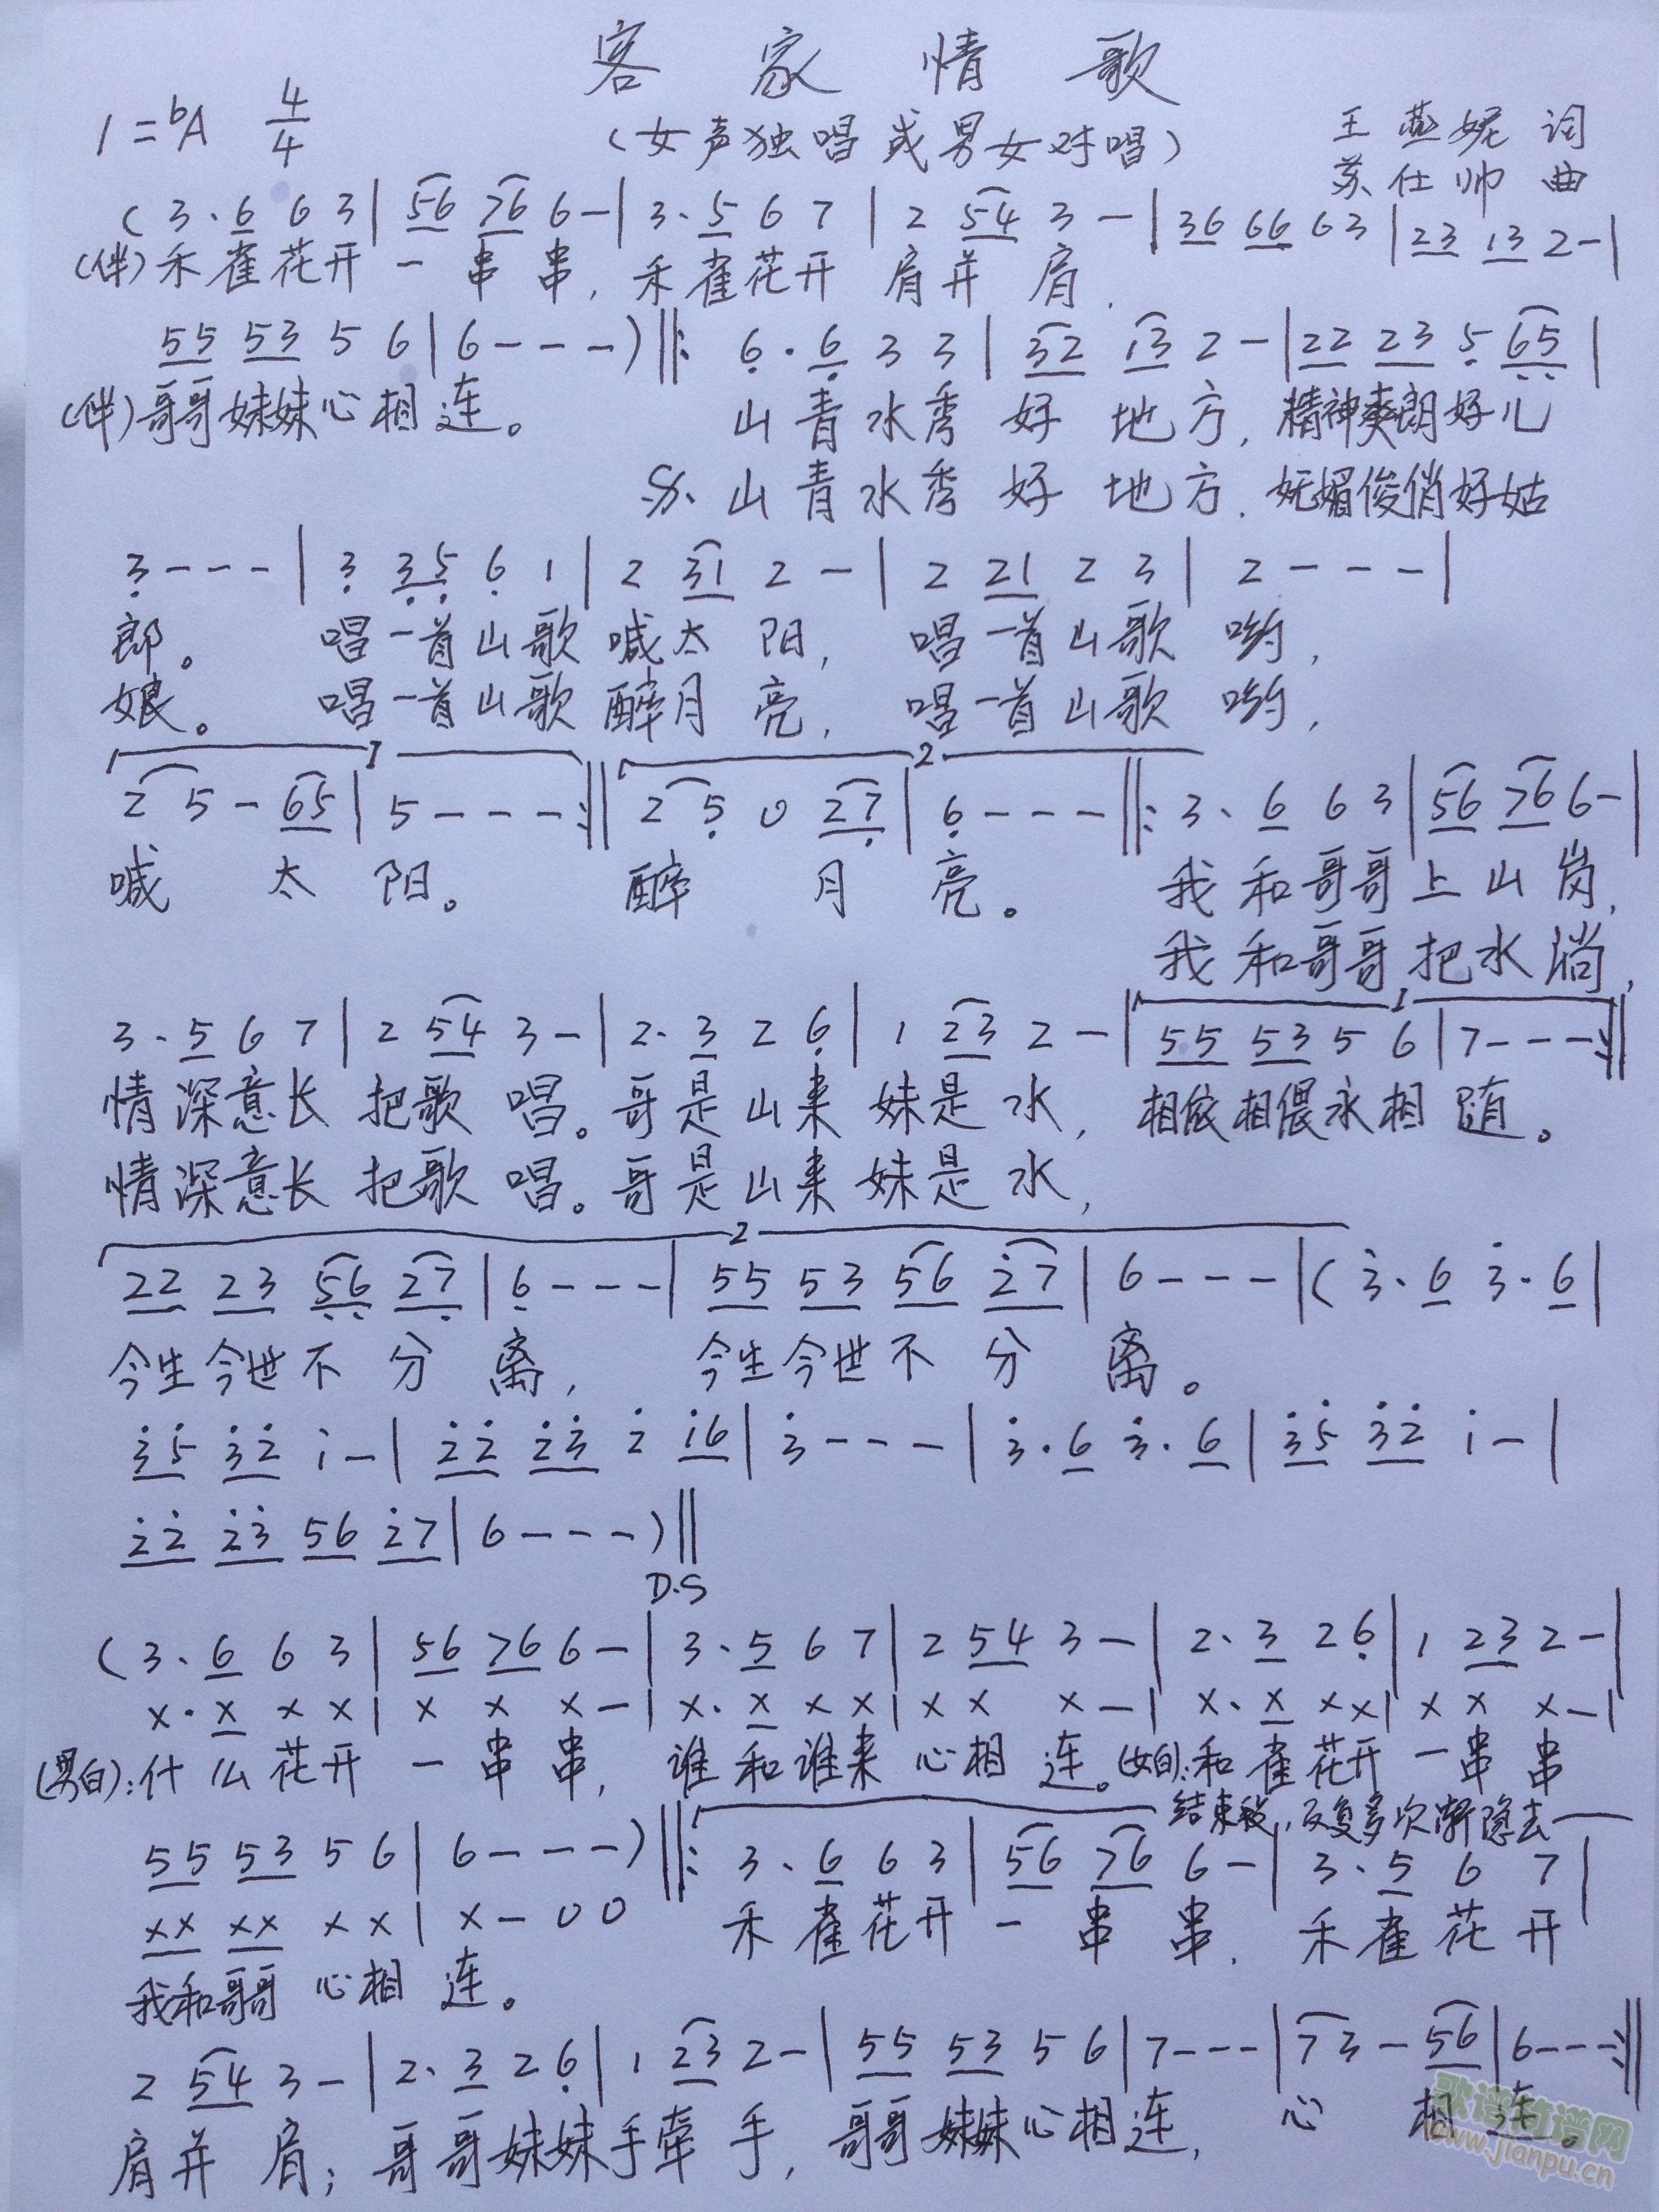 客家情歌
1=bA 4/4
(女声独唱或男女对唱)
王燕妮 词
苏仕帅 曲
(3·6 6 3|56 76 6-|3·5 6 7|2 54 3-|36 66 63|23 13 2-|
(伴)禾雀花开一串串,禾雀花开肩并肩,
55 53 5 6|6---)‖:6·6 3 3|32 13 2-|22 23 5 65|
(伴)哥哥妹妹心相连。 山青水秀好地方,精神爽朗好儿
山青水秀好地方,妩媚俊俏好姑
3---|3 35 6 1|2 31 2-|2 21 2 3|2---|
郎。 唱一首山歌喊太阳, 唱一首山歌哟,
娘。 唱一首山歌醉月亮, 唱一首山歌哟,
1 2
2 5-65|5---:‖2 5 0 27|6---‖:3·6 6 3|56 76 6-|
喊太阳。 醉月亮。 我和哥哥上山岗,
我和哥哥把水淌,
1
3·5 6 7|2 54 3-|2·3 2 6|1 23 2-|55 53 5 6|7---:‖
情深意长把歌唱。哥是山来妹是水,相依相偎永相随。
情深意长把歌唱。哥是山来妹是水,
2
22 23 56 27|6---|55 53 56 27|6---|(3·6 3·6|
今生今世不分离, 今生今世不分离。
35 32 1-|22 23 2 16|3---|3·6 3·6|35 32 1-|
22 23 56 27|6---)‖
D.S
(3·6 6 3|56 76 6-|3·5 6 7|2 54 3-|2·3 2 6|1 23 2-|
x·x x x|x x x-|x·x x x|x x x-|x·x x x|x x x-|
(男白):什么花开一串串,谁和谁来心相连。(女白):和雀花开一串串
结束段,反复多次渐隐去
55 53 5 6|6---)‖:3·6 6 3|56 76 6-|3·5 6 7|
xx xx x x|x-0 0 禾雀花开一串串,禾雀花开
我和哥哥心相连。
2 54 3-|2·3 2 6|1 23 2-|55 53 5 6|7---|7 3-56|6---:‖
肩并肩;哥哥妹妹手牵手,哥哥妹妹心相连,心相连。
歌谱简谱网
www.jianpu.cn